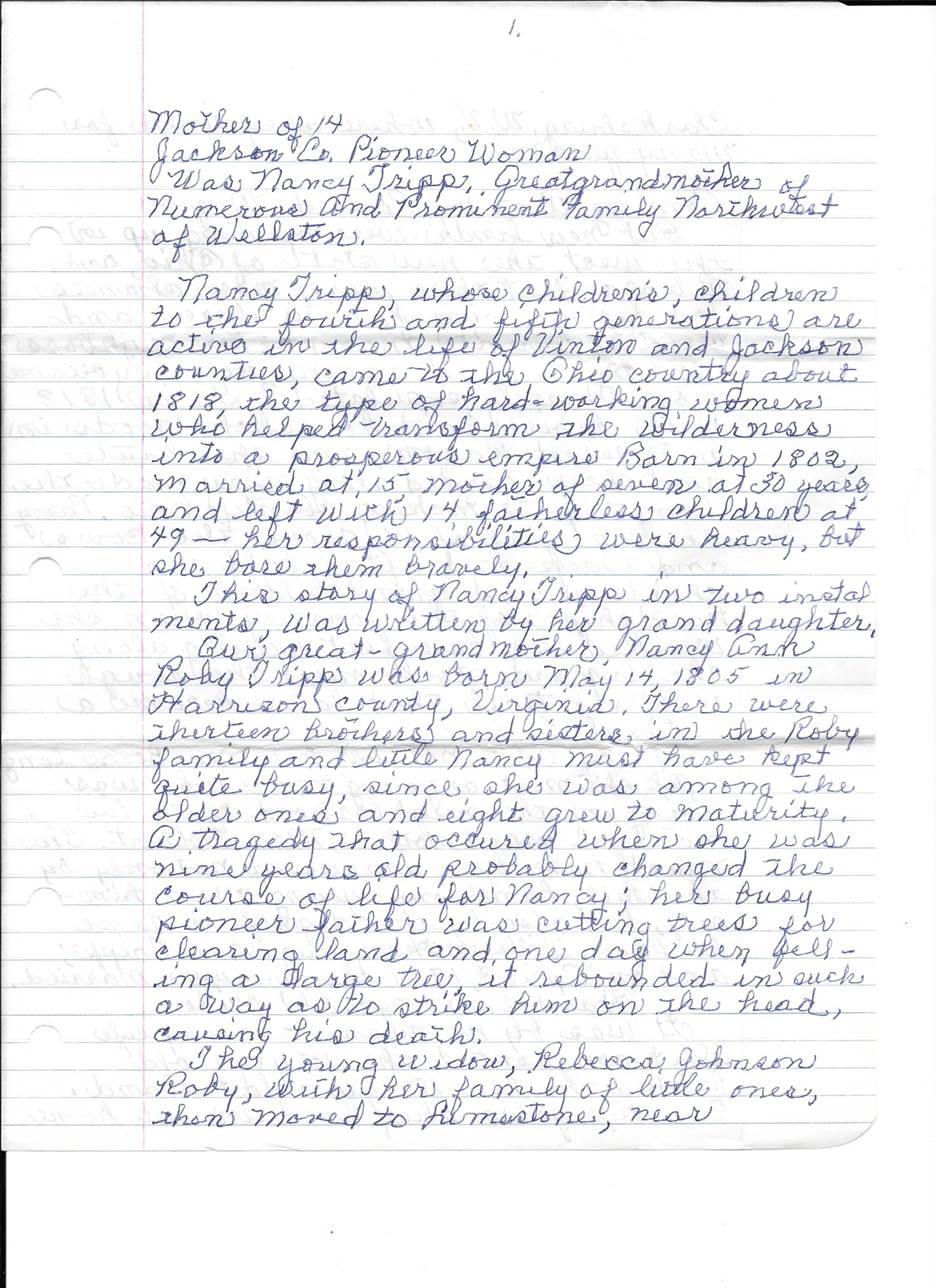 1.
Mother of 14
Jackson Co. Pioneer Woman
Was Nancy Tripp, Greatgrandmother of
Numerous and Prominent Family Northwest
of Wellston.
Nancy Tripp, whose children's, children
to the fourth and fifth generations are
active in the life of Vinton and Jackson
counties, came to the Ohio country about
1818, the type of hard-working women
who helped transform the wilderness
into a prosperous empire Born in 1802,
married at 15, mother of seven at 30 years,
and left with 14 fatherless children at
49 — her responsibilities were heavy, but
she bore them bravely.
This story of Nancy Tripp in two instal
ments, was written by her grand daughter,
Our great-grandmother, Nancy Ann
Roby Tripp was born May 14, 1805 in
Harrison county, Virginia. There were
thirteen brothers and sisters in the Roby
family and little Nancy must have kept
quite busy, since she was among the
older ones and eight grew to maturity.
A tragedy that occured when she was
nine years old probably changed the
course of life for Nancy; her busy
pioneer father was cutting trees for
clearing land and one day when fell-
ing a large tree, it rebounded in such
a way as to strike him on the head,
causing his death.
The young widow, Rebecca Johnson
Roby, with her family of little ones,
then moved to Limestone, near